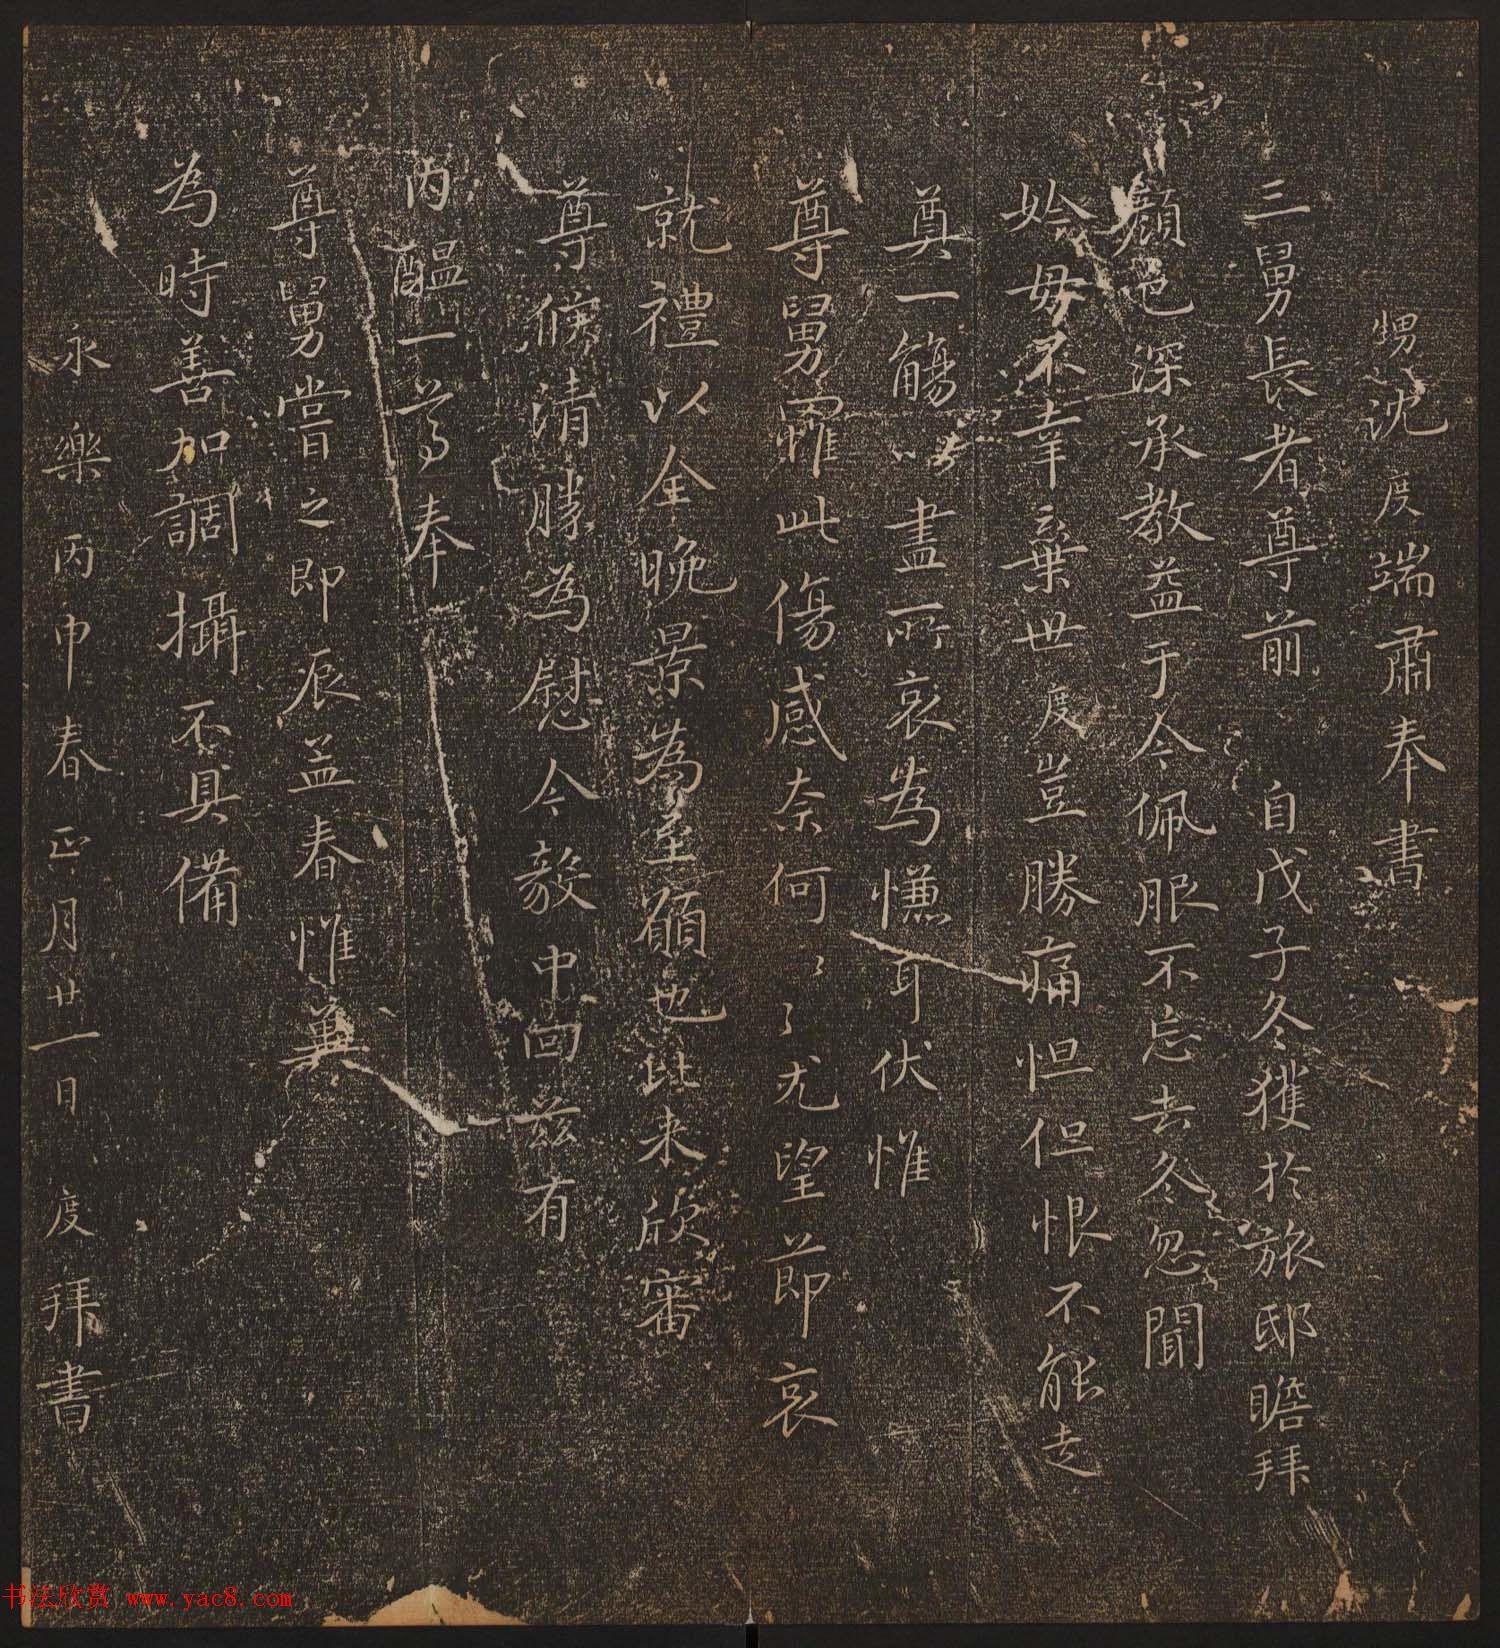 甥沈度端肅奉書
三舅長者尊前 自戊子冬獲於旅邸瞻拜
顏色深承教益于今佩服不忘去冬忽聞
妗母不幸棄世度豈勝痛怛但恨不能走
奠一觴以盡所哀為慊耳伏惟
尊舅罹此傷感奈何〻〻尤望節哀
就禮以全晚景為至願也比来欣審
尊候清勝為慰今毅中回茲有
丙醖一尊奉
尊舅嘗之即辰孟春惟兾
為時善加調攝不具備
永樂丙申春正月廿一日度拜書
书法欣赏 www.yac8.com